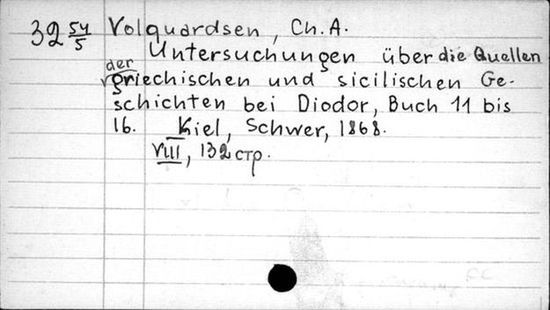 32 54/5 Volquardsen, Ch. A.
Untersuchungen über die Quellen
der griechischen und sicilischen Ge-
schichten bei Diodor, Buch 11 bis
16. Kiel, Schwer, 1868.
VIII, 132 стр.